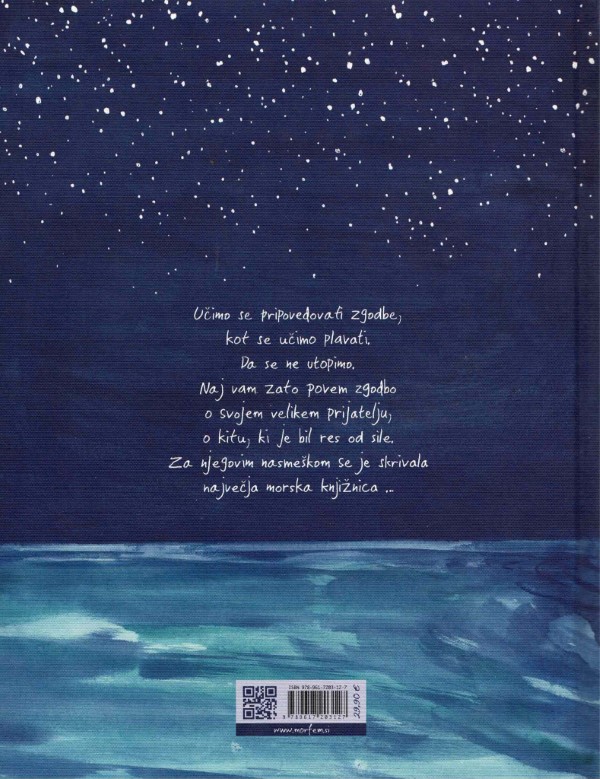 Učimo se pripovedovati zgodbe,
kot se učimo plavati.
Da se ne utopimo.
Naj vam zato povem zgodbo
o svojem velikem prijatelju,
o kitu, ki je bil res od sile.
Za njegovim nasmeškom se je skrivala
največja morska knjižnica ...
ISBN 978-961-7203-12-7
9 789617 203127
29,90 €
www.morfem.si